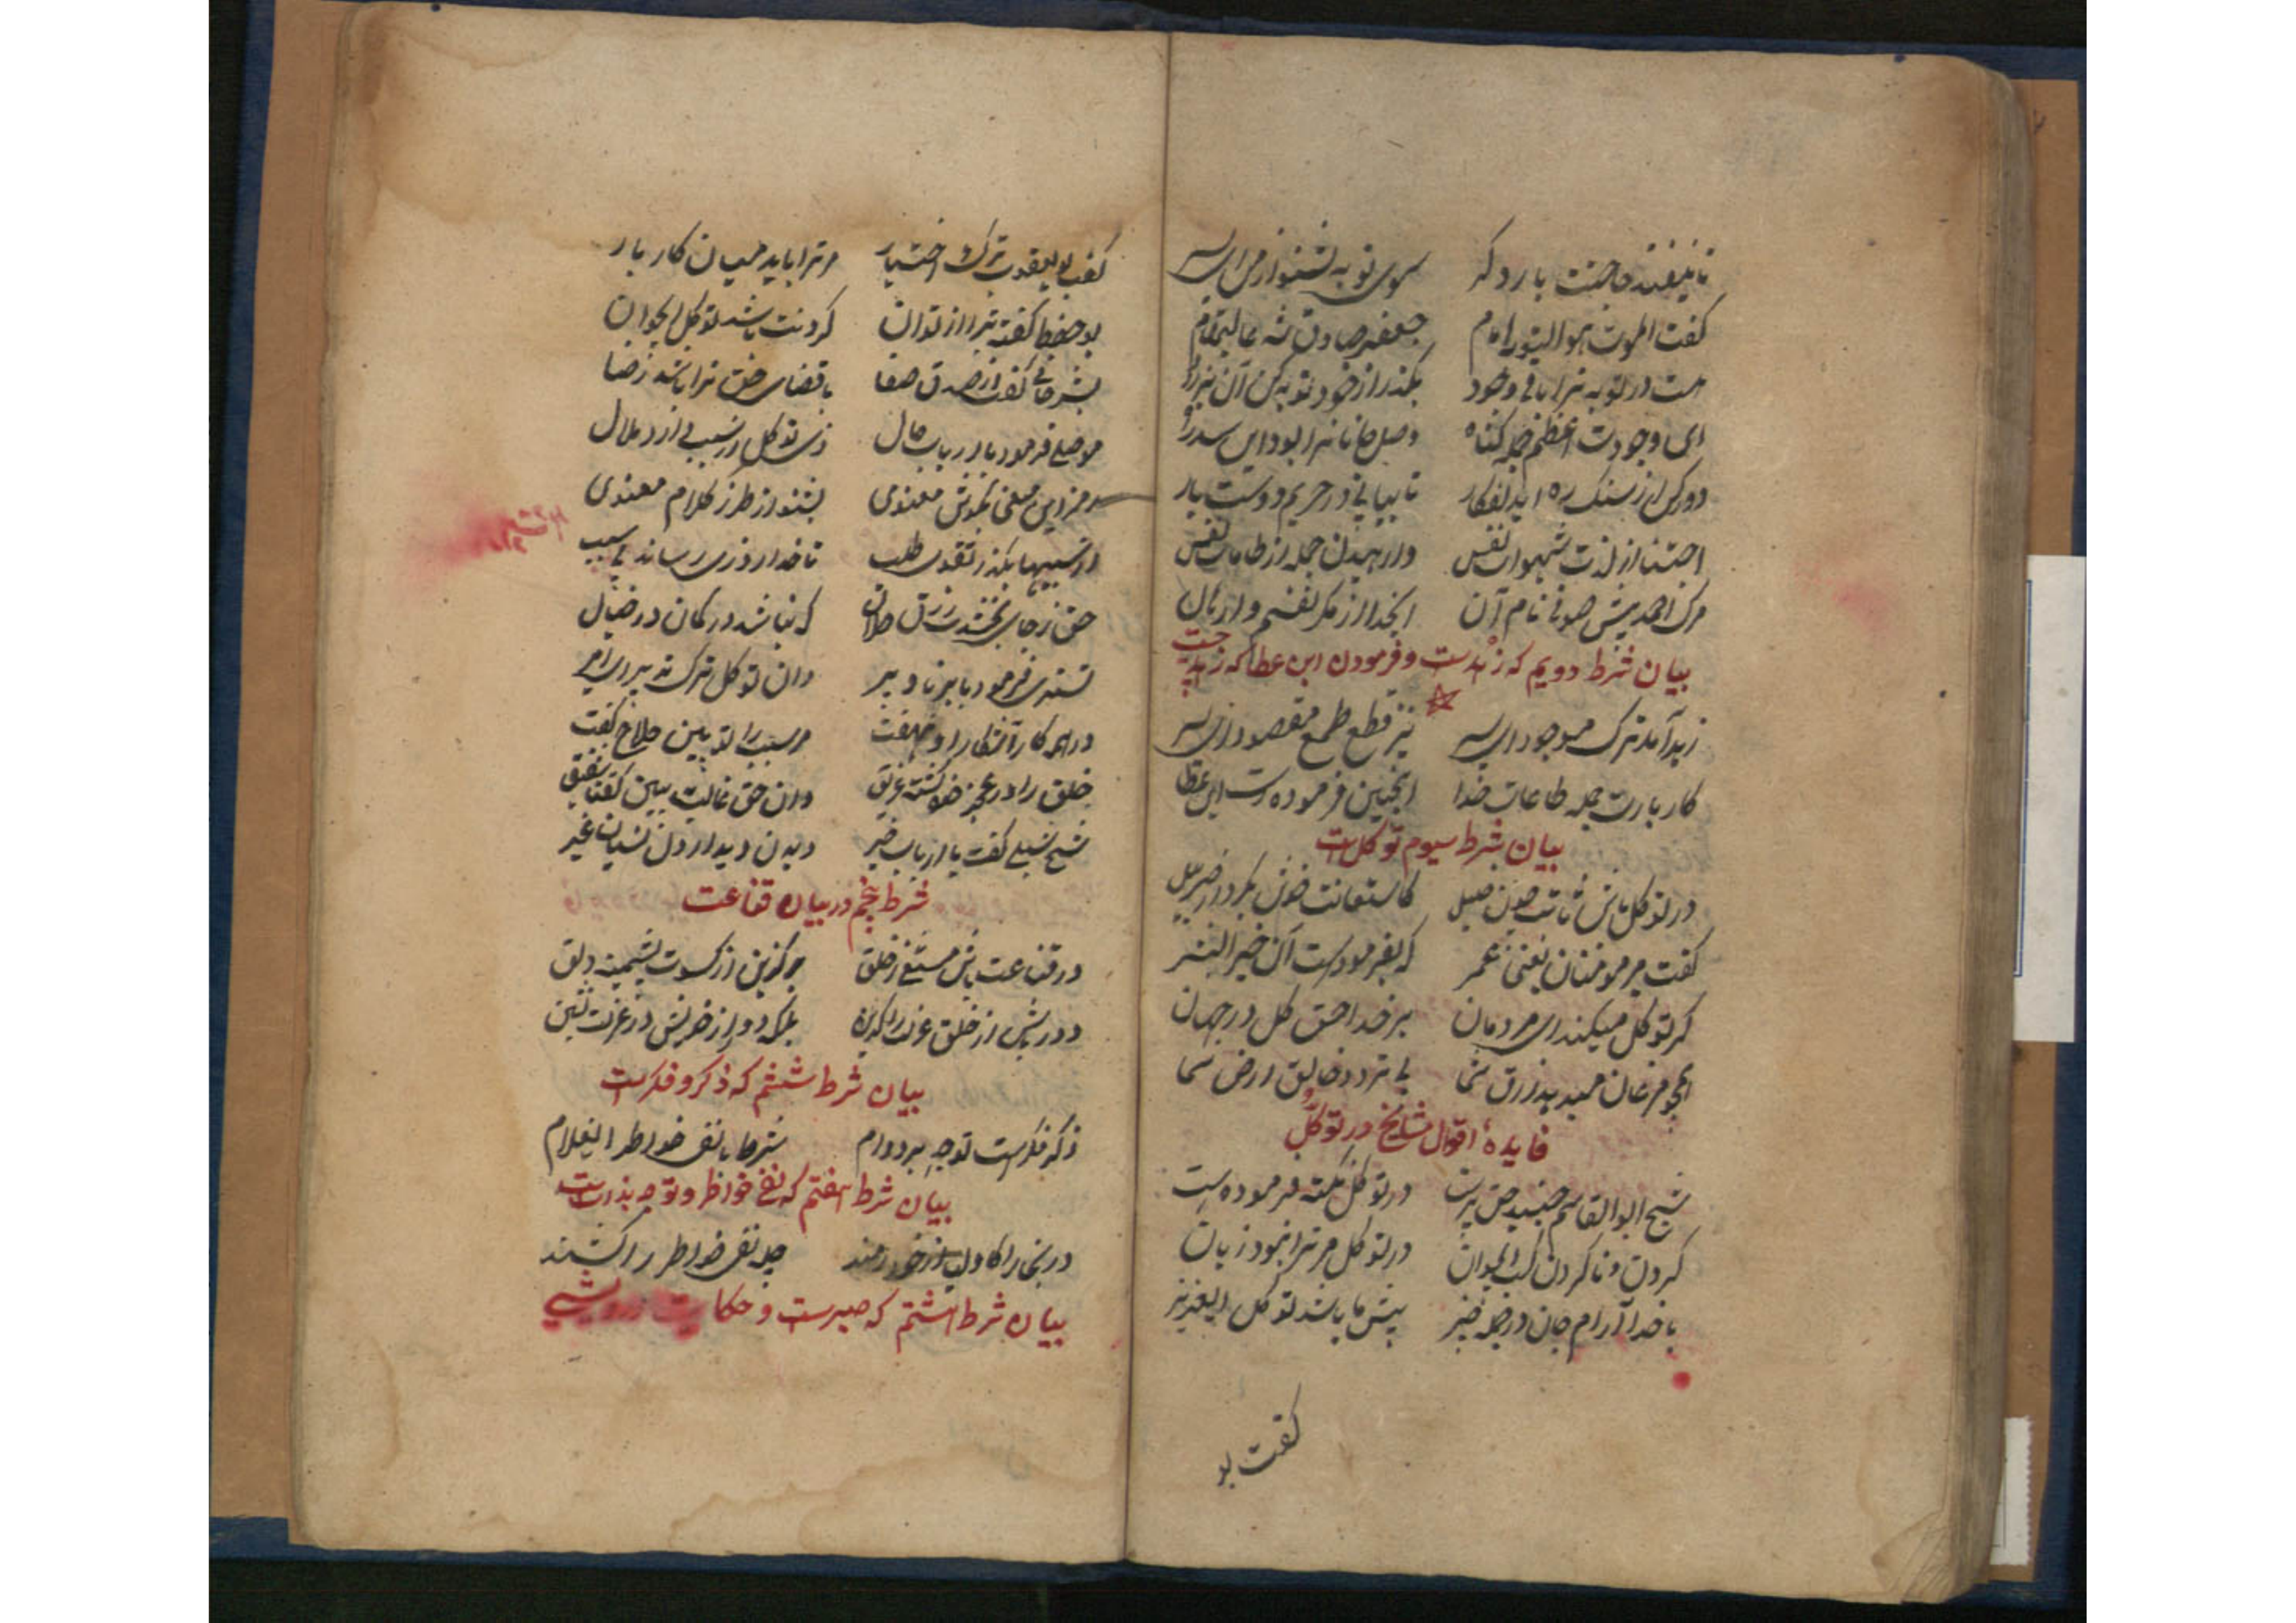 تا نیفتد حاجتت بار دگر سوی توبه بشنو از من ای پسر
گفت الموت هو التوبه امام جعفر صادق شه عالیمقام
هست در توبه ترا باقی وجود بگذر از خود توبه کن آن نیز زود
ای وجودت اعظم جمله گناه وصل جانانرا بود این سد راه
دور کن از سنگ ره ایدلفکار تا بیایی در حریم دوست بار
اجتناب از لذت شهوات نفس وارهیدن جمله از طامات نفس
مرگ احمر پیش صوفی نام آن ایخدا از مکر نفسم وارهان
بیان شرط دویم که زهدست و فرمودن ابن عطا که زهد چیست
زهد آمد ترک موجود ای پسر نیز قطع طمع مقصود ای پسر
کار بارت جمله طاعات خدا اینچنین فرموده است ابن عطا
بیان شرط سیوم توکل است
در توکل باش ثابت چون جبل کاستعانت خود نکرد از جبرئیل
گفت مر مومنان یعنی عمر که بفرمودست آن خیر البشر
گر توکل میکنند ای مردمان بر خدا حق کل در جهان
همچو مرغان میدهد رزق شما بی تردد خالق ارض و سما
فایده اقوال مشایخ در توکل
شیخ ابو القاسم جنید حق پرست در توکل نکته فرموده است
کردن و ناکردن کسب ایجوان در توکل مر ترا نبود زیان
با خدا آرام جان در جمله چیز پیش ما باشد توکل ای عزیز
گفت بو
گفت بو یعقوب ترک اختیار مر ترا باید میان کار بار
بو حفص گفته تبرا از توان کردنت باشد توکل ایجوان
بشر حافی گفت از صدق صفا با قضای حق ترا باشد رضا
موصلی فرمود با ارباب حال زی توکل از سبب دارد ملال
رمز این معنی بگوش معنوی بشنو از طرز کلام معنوی
از سببها بگذر تقوی طلب تا خدا روزی رساند بی سبب
حق ز جای بخشدت رزق حلال که نباشد در گمان در خیال
تستری فرمود با برنا و پیر دان توکل ترک تدبیر ای امیر
در همه کار آشکارا و نهفت مر سبب را تو ببین حلاج گفت
خلق را در عجز خود گشته غریق وان حق غالب ببین گفتا شقیق
شیخ شبلی گفت با ارباب خیر دیدن دیدار دل نسیان غیر
شرط پنجم در بیان قناعت
در قناعت باش مستغنی ز خلق برگزین از کسوت پشمینه دلق
دور باش از خلق عزلت را گزین بلکه دور از خویش در عزلت نشین
بیان شرط ششم که ذکر و فکرست
ذکر فکرست توجه بر دوام شرط با نفی خواطر ای غلام
بیان شرط هفتم که نفی خواطر و توجه بذاتست
جمله نفی خواطر را کنند
بیان شرط هشتم که صبرست و حکایت درویشی